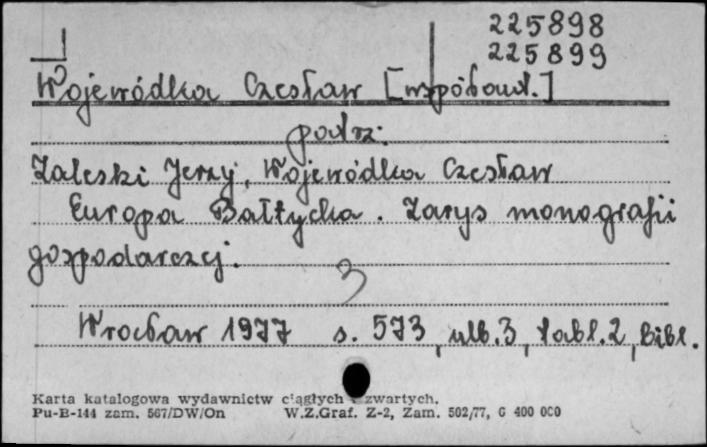 225898
225899
Wojewódka Czesław [współaut.]
patrz:
Zaleski Jerzy, Wojewódka Czesław
Europa Bałtycka. Zarys monografii
gospodarczej.
3
Wrocław 1977 s. 573, ulb. 3, tabl. 2, bibl.
Karta katalogowa wydawnictw ciągłych zwartych.
Pu-B-144 zam. 567/DW/On W.Z.Graf. Z-2, Zam. 502/77, G 400 000